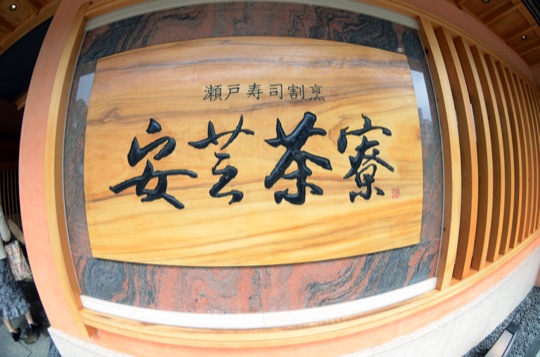 瀬戸寿司割烹
安芸茶寮